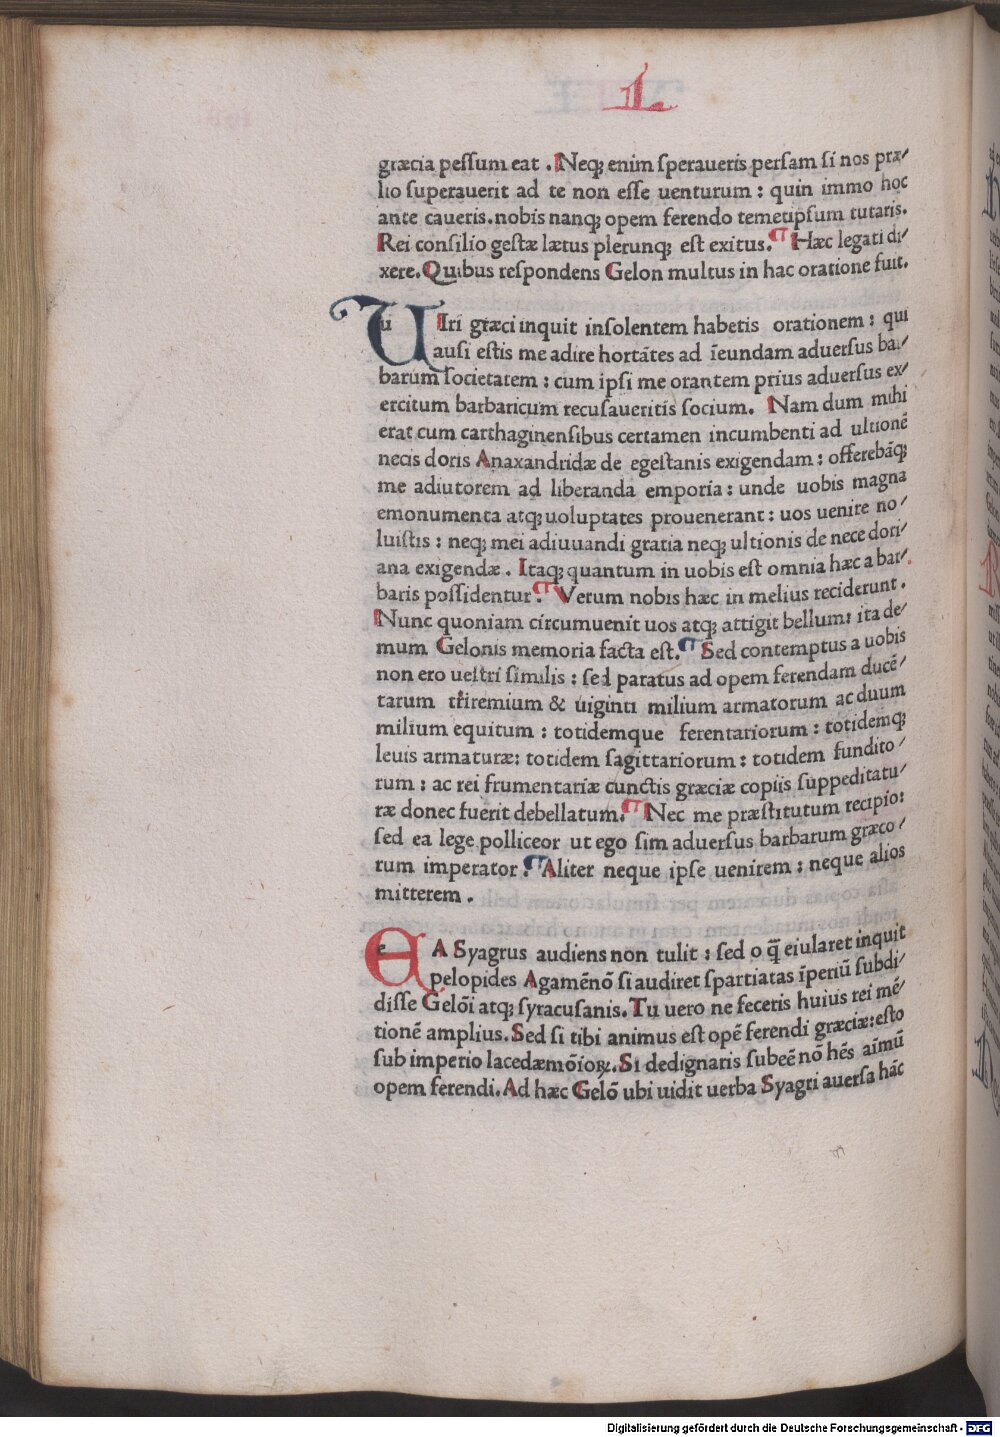 L
græcia peſſum eat . Neq; enim ſperaueris perſam ſi nos præ⸗
lio ſuperauerit ad te non eſſe uenturum : quin immo hoc
ante caueris. nobis nanq; opem ferendo temetipſum tutaris.
Rei conſilio geſtæ lætus plerunq; eſt exitus. ¶ Hæc legati di⸗
xere. Quibus reſpondens Gelon multus in hac oratione fuit.
Uiri græci inquit inſolentem habetis orationem : qui
auſi eſtis me adire hortātes ad īeundam aduerſus bar⸗
barum ſocietatem : cum ipſi me orantem prius aduerſus ex⸗
ercitum barbaricum recuſaueritis ſocium. Nam dum mihi
erat cum carthaginenſibus certamen incumbenti ad ultionē
necis doris Anaxandridæ de egeſtanis exigendam : offerebāq;
me adiutorem ad liberanda emporia : unde uobis magna
emonumenta atq; uoluptates prouenerant : uos uenire no⸗
luiſtis : neq; mei adiuuandi gratia neq; ultionis de nece dori⸗
ana exigendæ . Itaq; quantum in uobis eſt omnia hæc a bar⸗
baris poſſidentur. ¶ Verum nobis hæc in melius reciderunt .
Nunc quoniam circumuenit uos atq; attigit bellum: ita de⸗
mum Gelonis memoria facta eſt. ¶ Sed contemptus a uobis
non ero ueſtri ſimilis : ſed paratus ad opem ferendam ducē⸗
tarum triremium & uiginti milium armatorum ac duum
milium equitum : totidemque ferentariorum : totidemq;
leuis armaturæ: totidem ſagittariorum : totidem fundito⸗
rum : ac rei frumentariæ cunctis græciæ copiis ſuppeditatu⸗
ræ donec fuerit debellatum. ¶ Nec me præſtitutum recipio:
ſed ea lege polliceor ut ego ſim aduerſus barbarum græco⸗
rum imperator. ¶ Aliter neque ipſe uenirem : neque alios
mitterem .
EA Syagrus audiens non tulit : ſed o q̄ eiularet inquit
pelopides Agamēnō ſi audiret ſpartiatas īperiū ſubdi⸗
diſſe Gelōi atq; ſyracuſanis. Tu uero ne feceris huius rei mē⸗
tionē amplius. Sed ſi tibi animus eſt opē ferendi græciæ: eſto
ſub imperio lacedæmōioꝝ. Si dedignaris ſubeē nō hēs aīmū
opem ferendi. Ad hæc Gelō ubi uidit uerba Syagri auerſa hāc
Digitalisierung gefördert durch die Deutsche Forschungsgemeinschaft - DFG